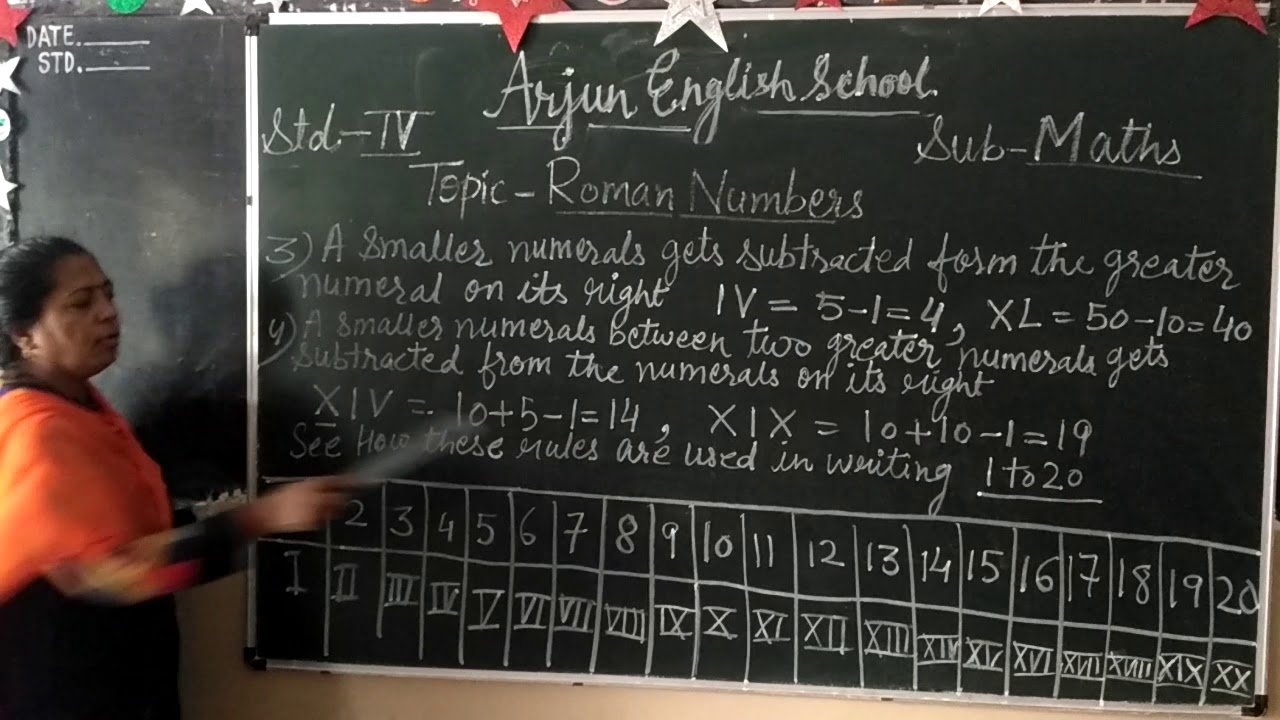 DATE.
STD.
Arjun English School.
Std.-IV
Sub-Maths
Topic-Roman Numbers
3) A smaller numerals gets subtracted form the greater
numeral on its right IV = 5-1=4, XL = 50-10=40
4) A smaller numerals between two greater numerals gets
subtracted from the numerals on its right
XIV = 10+5-1=14, XIX = 10+10-1=19
See How these rules are used in writing 1 to 20
2 3 4 5 6 7 8 9 10 11 12 13 14 15 16 17 18 19 20
I II III IV V VI VII VIII IX X XI XII XIII XIV XV XVI XVII XVIII XIX XX